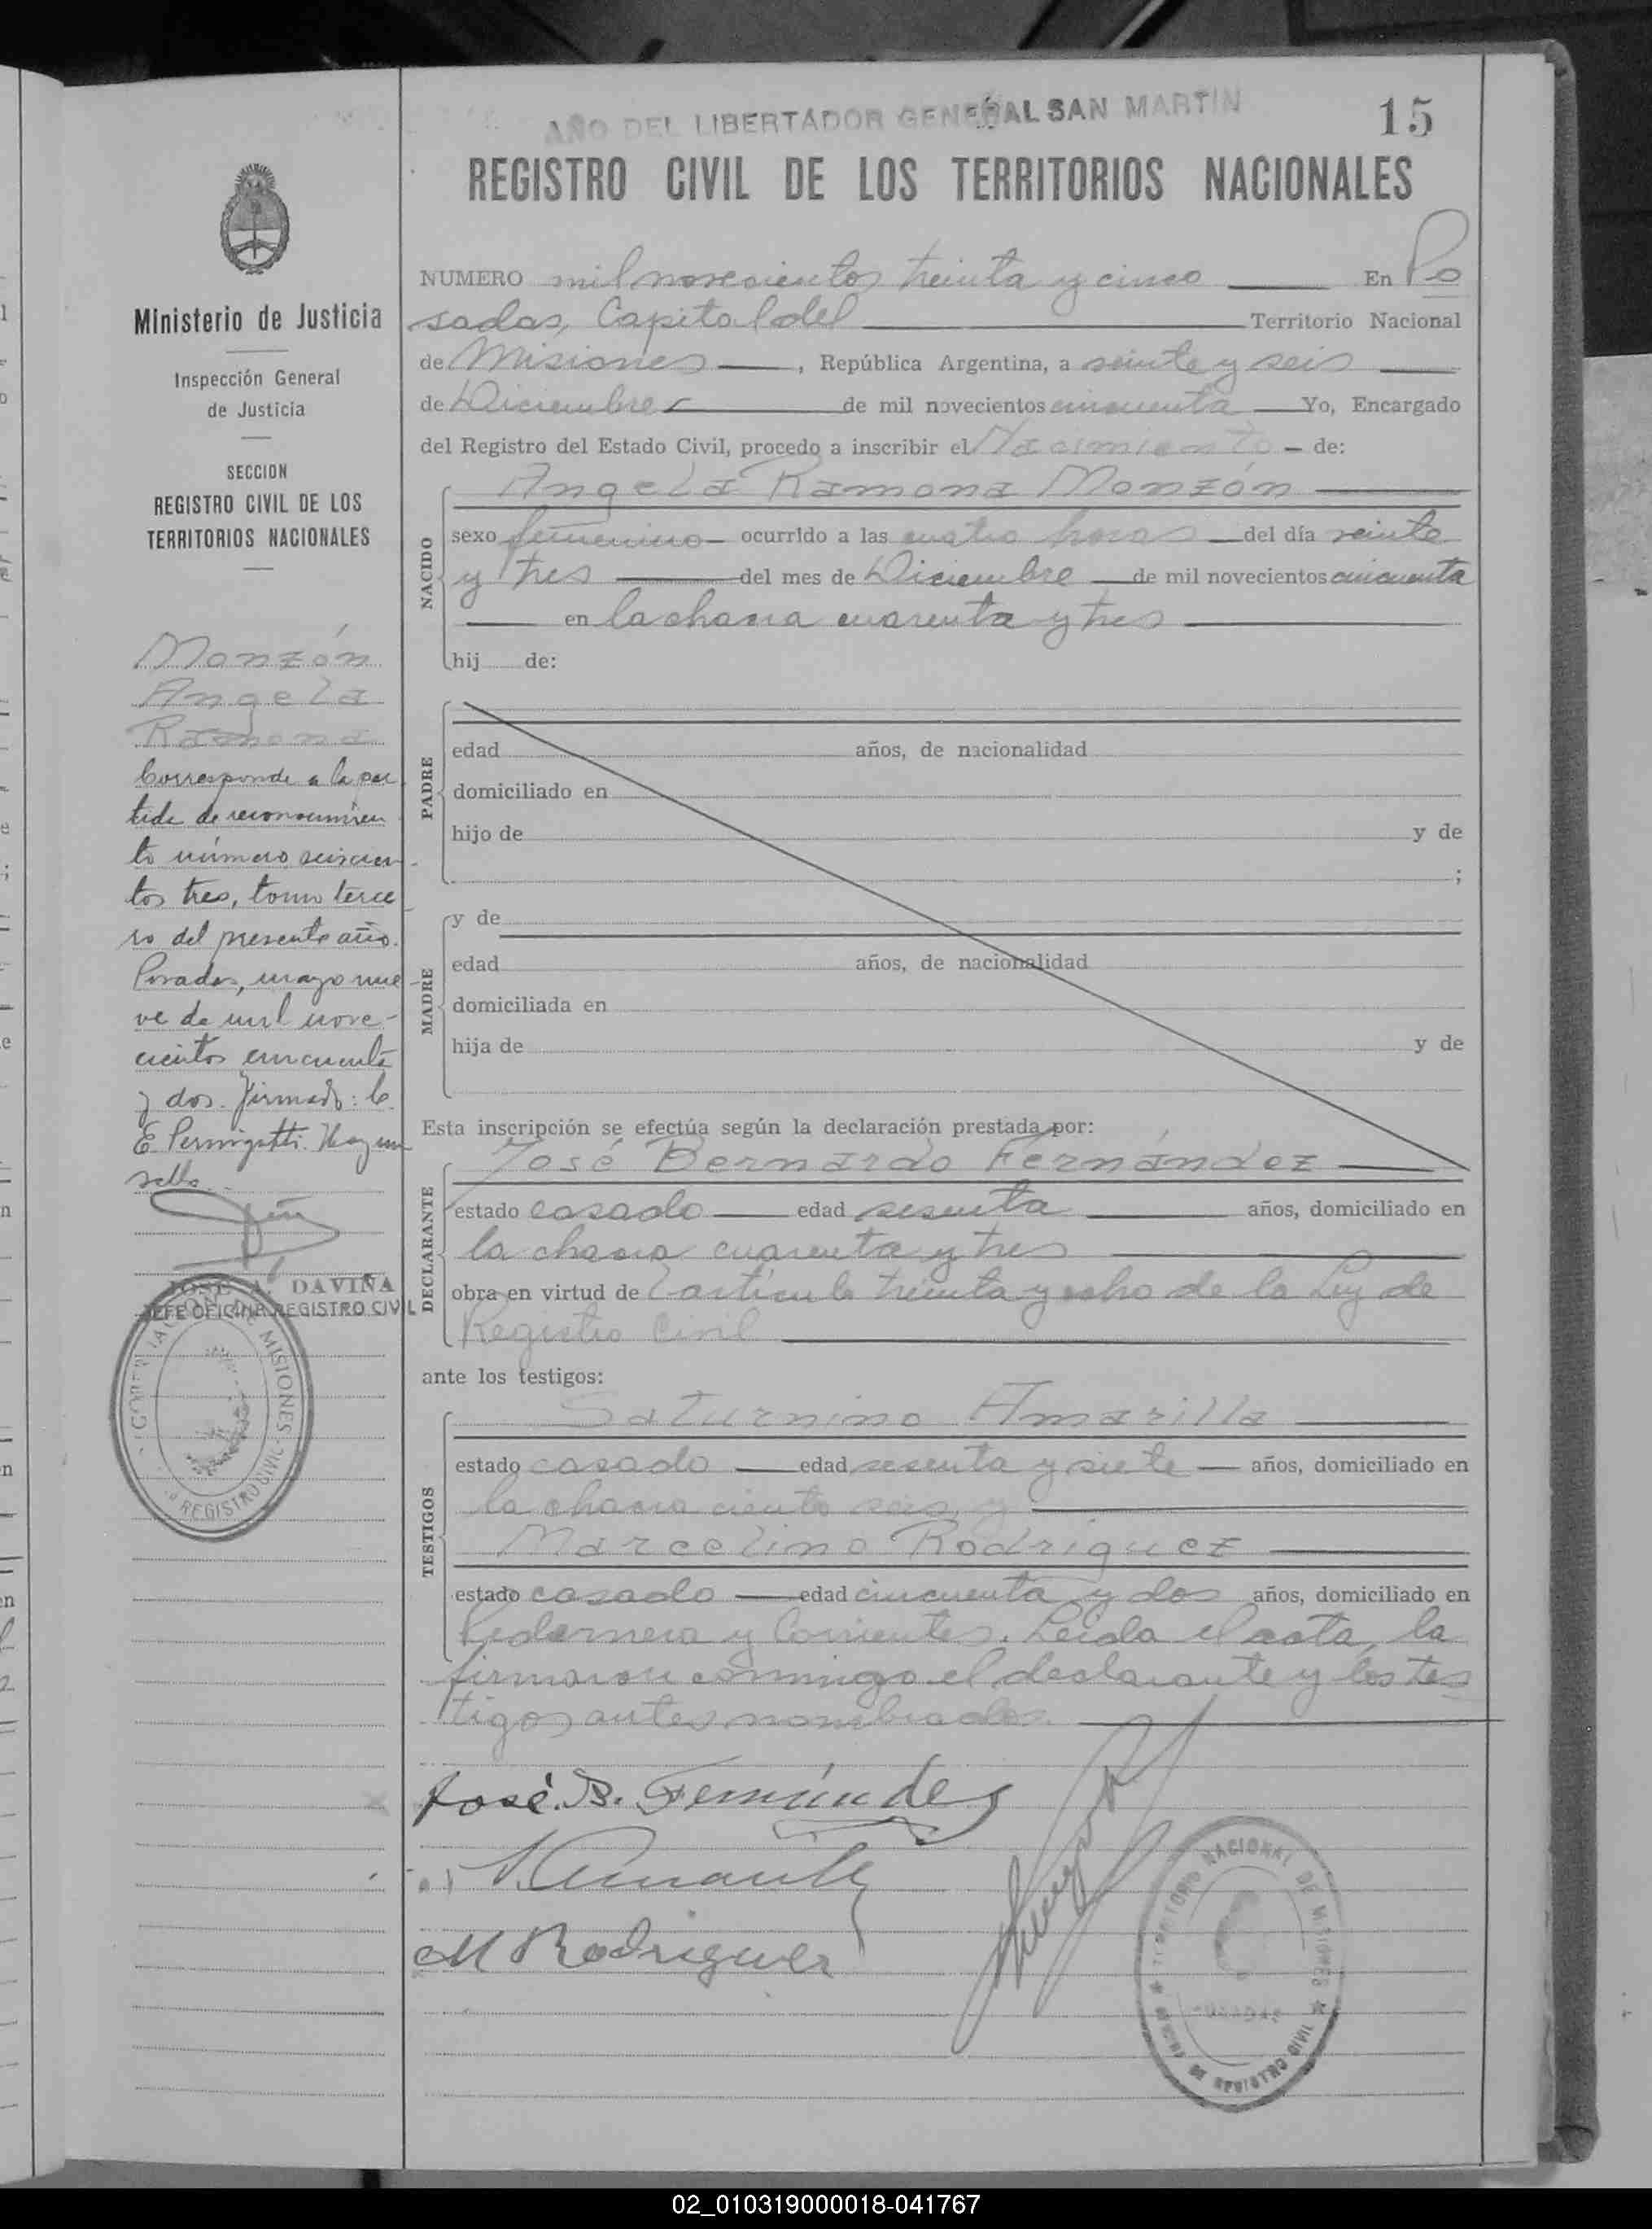 AÑO DEL LIBERTADOR GENERAL SAN MARTIN
15
REGISTRO CIVIL DE LOS TERRITORIOS NACIONALES
Ministerio de Justicia
Inspección General
de Justicia
SECCION
REGISTRO CIVIL DE LOS
TERRITORIOS NACIONALES
Monzón
Angela
Ramona
Corresponde a la par
tida de reconocimien
to número seiscien
tos tres, tomo terce
ro del presente año.
Posadas, mayo nue
ve de mil nove-
cientos cincuenta
y dos. Firmado: C.
E. Permigotti. Hay un
sello.
JOSE A. DAVIÑA
JEFE OFICINA REGISTRO CIVIL
MISIONES
REGISTRO CIVIL
NUMERO mil novecientos treinta y cinco En Po
sadas, Capital del Territorio Nacional
de Misiones, República Argentina, a veinte y seis
de Diciembre de mil novecientos cincuenta Yo, Encargado
del Registro del Estado Civil, procedo a inscribir el Nacimiento de:
NACIDO
Angela Ramona Monzón
sexo femenino ocurrido a las cuatro horas del día veinte
y tres del mes de Diciembre de mil novecientos cincuenta
en la chacra cuarenta y tres
hij de:
PADRE
edad años, de nacionalidad
domiciliado en
hijo de y de
;
MADRE
y de
edad años, de nacionalidad
domiciliada en
hija de y de
Esta inscripción se efectúa según la declaración prestada por:
DECLARANTE
José Bernardo Fernández
estado casado edad sesenta años, domiciliado en
la chacra cuarenta y tres
obra en virtud de l artículo treinta y ocho de la Ley de
Registro Civil
ante los testigos:
TESTIGOS
Saturnino Amarilla
estado casado edad sesenta y siete años, domiciliado en
la chacra ciento seis, y
Marcelino Rodriguez
estado casado edad cincuenta y dos años, domiciliado en
Pedernera y Corrientes. Leída el acta, la
firmaron conmigo el declarante y los tes
tigos antes nombrados.
José. B. Fernández
S. Amarilla
M Rodriguez
TERRITORIO NACIONAL DE MISIONES
POSADAS
OFICINA DE REGISTRO CIVIL
02_010319000018-041767